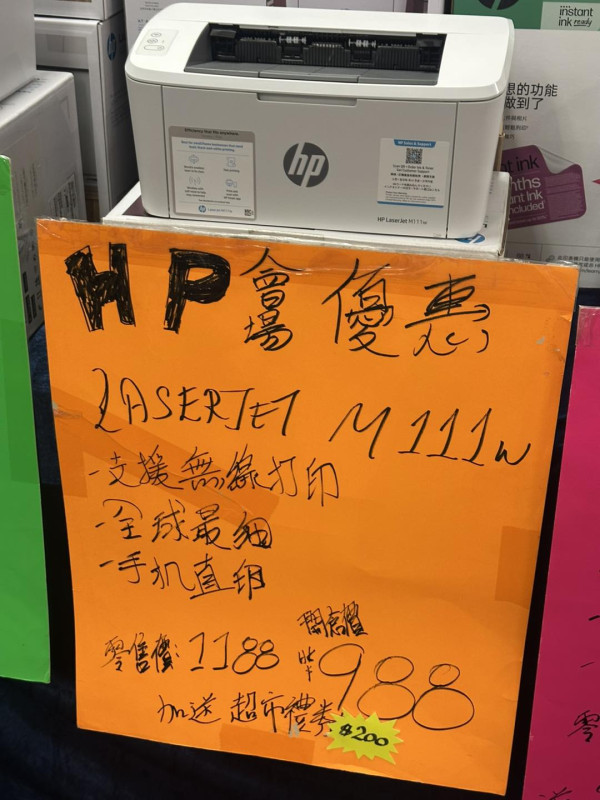 instant
ink ready
想的功能
做到了
ink
nths
ant ink
ncluded
hp
HP LaserJet M111w
HP 會場優惠
LASERJET M111w
-支援無線打印
-全球最細
-手机直印
零售價:1188
開倉價
988
加送超市禮券
$200
零
送